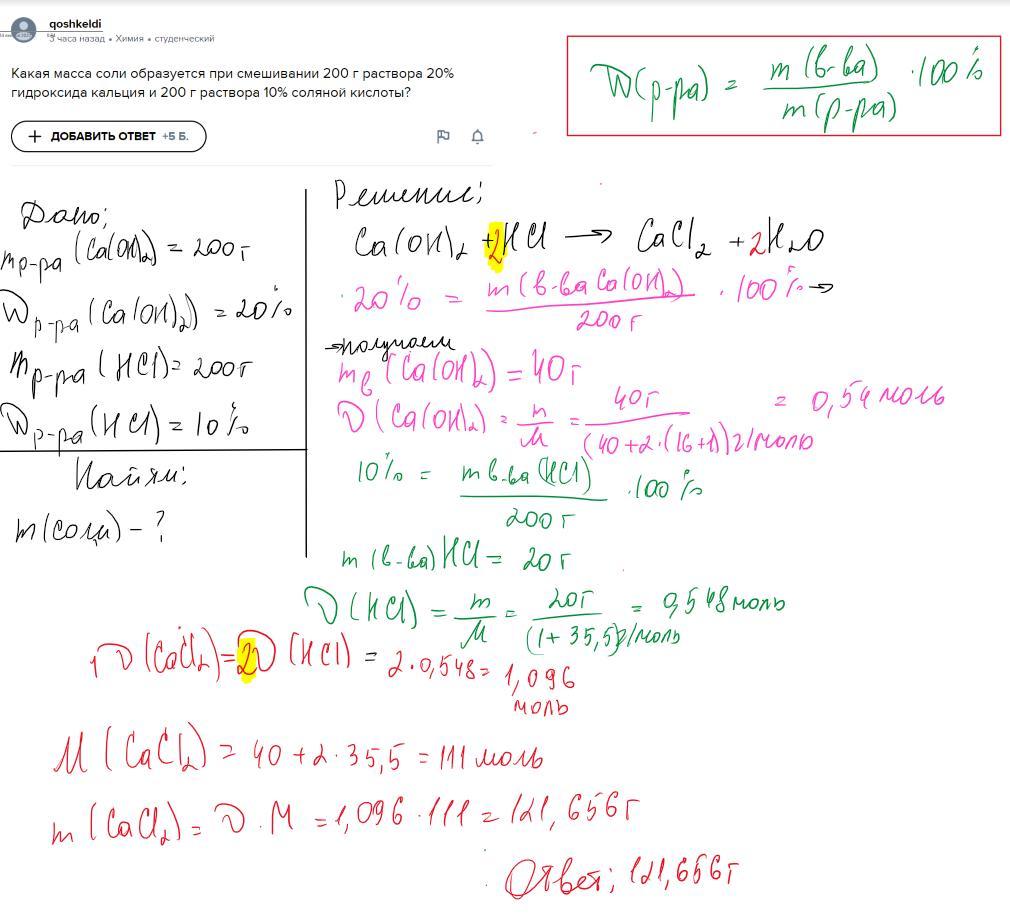 qoshkeldi
3 часа назад • Химия • студенческий
Какая масса соли образуется при смешивании 200 г раствора 20%
гидроксида кальция и 200 г раствора 10% соляной кислоты?
+ ДОБАВИТЬ ОТВЕТ +5 Б.
W(р-ра) = m(в-ва) / m(р-ра) · 100%
Дано;
mр-ра (Ca(OH)₂) = 200г
Wр-ра (Ca(OH)₂) = 20%
mр-ра (HCl) = 200г
Wр-ра (HCl) = 10%
Найти:
m(соли) - ?
Решение;
Ca(OH)₂ + 2HCl → CaCl₂ + 2H₂O
20% = m(в-ва Ca(OH)₂) / 200г · 100% →
→получаем
mв (Ca(OH)₂) = 40г
ν(Ca(OH)₂) = m/M = 40г / (40+2·(16+1))г/моль = 0,54 моль
10% = m в-ва (HCl) / 200г · 100%
m (в-ва) HCl = 20г
ν(HCl) = m/M = 20г / (1+35,5)г/моль = 0,548 моль
1ν(CaCl₂) = 2ν(HCl) = 2·0,548 = 1,096
моль
M(CaCl₂) = 40+2·35,5 = 111 моль
m(CaCl₂) = ν·M = 1,096·111 = 121,656г
Ответ; 121,656г